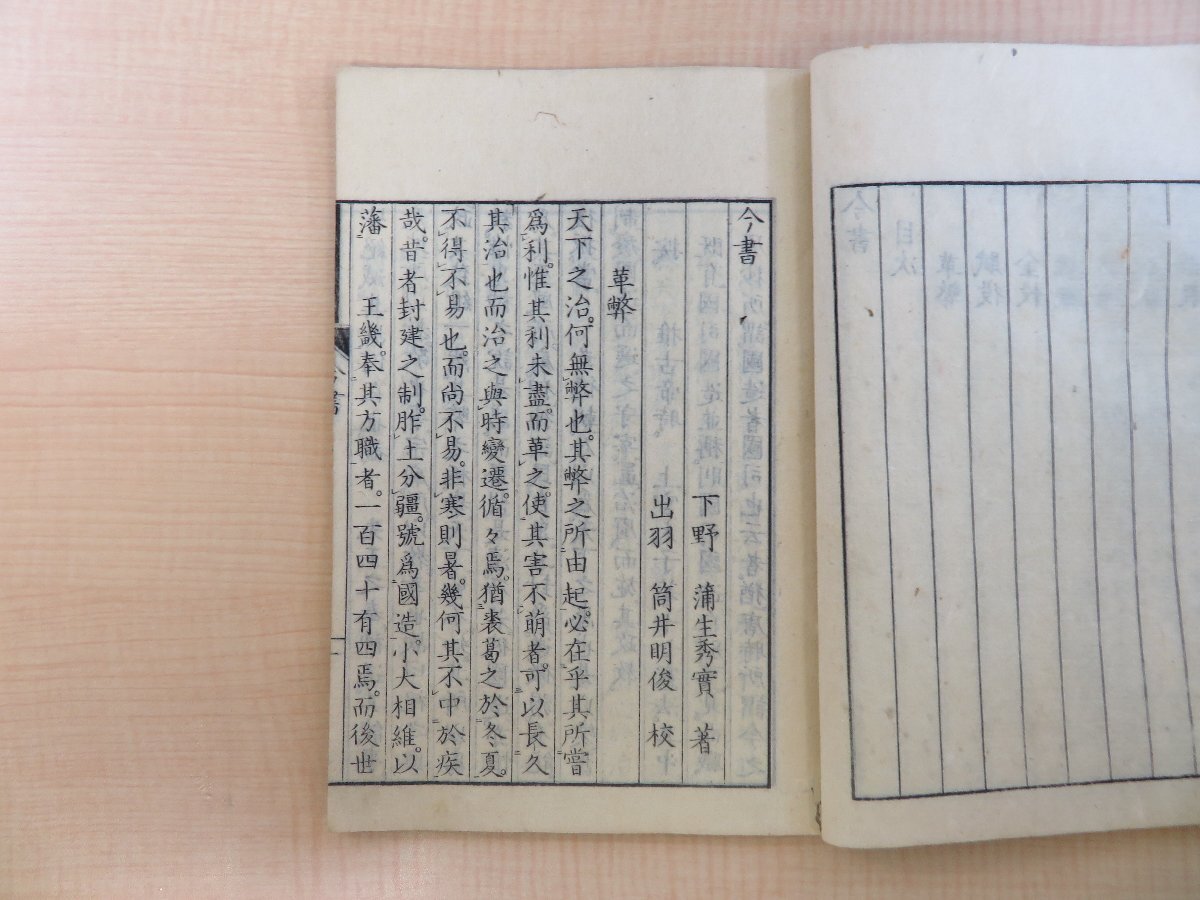 今書
下野 蒲生秀實 著
出羽 筒井明俊 校
革弊
天下之治。何無弊也。其弊之所由起。必在乎其所嘗
爲利。惟其利未盡。而革之。使其害不萌者。可以長久
其治也。而治之與時變遷。循々焉。猶裘葛之於冬夏。
不得不易也。而尚不易。非寒則暑。幾何其不中於疾
哉。昔者封建之制。胙土分疆。號爲國造。小大相維。以
藩 王畿。奉其方職者。一百四十有四焉。而後世